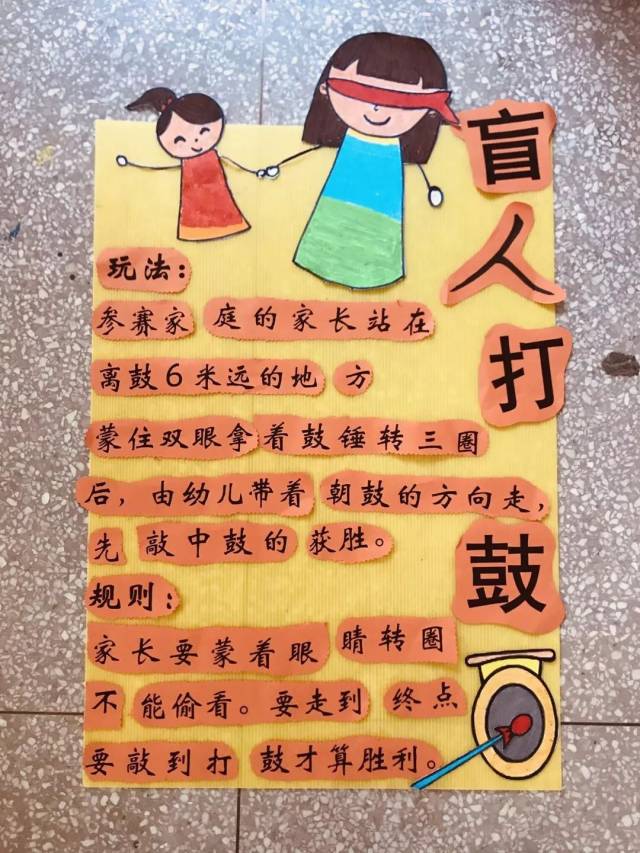 盲人打鼓
玩法：
参赛家庭的家长站在
离鼓6米远的地方
蒙住双眼拿着鼓锤转三圈
后，由幼儿带着朝鼓的方向走，
先敲中鼓的获胜。
规则：
家长要蒙着眼睛转圈
不能偷看。要走到终点
要敲到打鼓才算胜利。